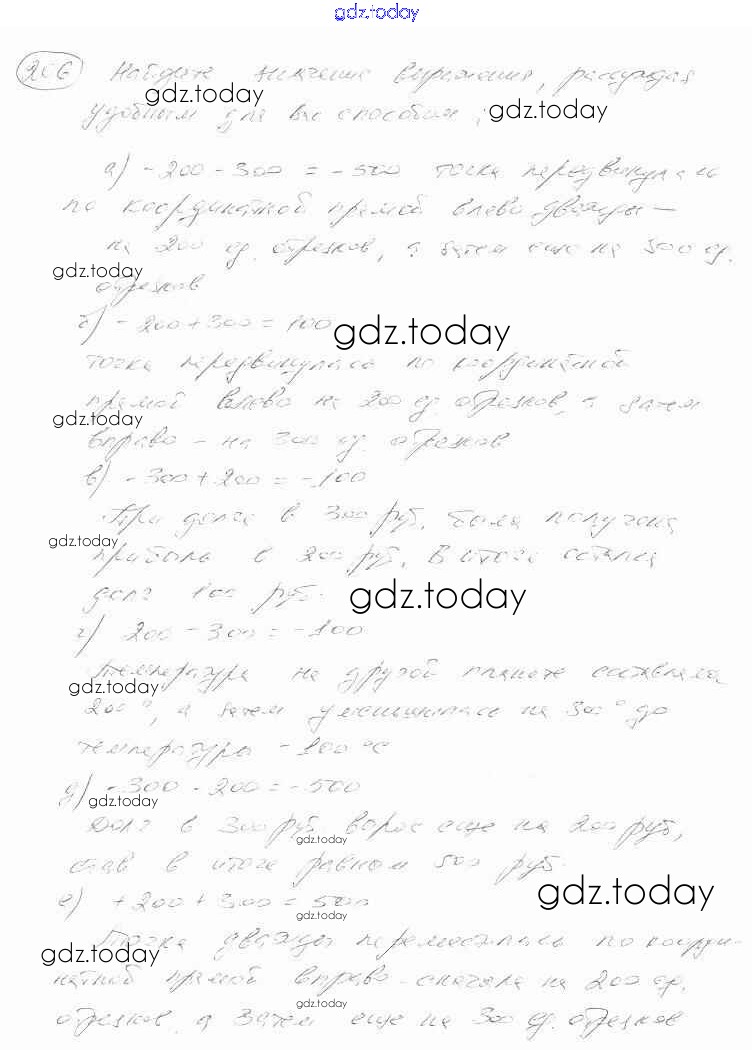 gdz.today
206 Найдите значение выражения, рассуждая
gdz.today
удобным для вас способом:
gdz.today
а) -200 - 300 = -500 точка передвинулась
по координатной прямой влево дважды –
на 200 ед. отрезков, а затем еще на 300 ед.
gdz.today
отрезков
б) -200 + 300 = 100
gdz.today
точка передвинулась по координатной
прямой влево на 200 ед. отрезков, а затем
gdz.today
вправо - на 300 ед. отрезков
в) -300 + 200 = -100
При долге в 300 руб. была получена
gdz.today
прибыль в 200 руб. В итоге остался
долг 100 руб.
gdz.today
г) 200 - 300 = -100
Температура на другой планете составляла
gdz.today
200°, а затем уменьшилась на 300° до
температуры -100 °С
д) -300 - 200 = -500
gdz.today
Долг в 300 руб. вырос еще на 200 руб,
gdz.today
став в итоге равном 500 руб.
е) +200 + 300 = 500
gdz.today
gdz.today
Точка дважды переместилась по коорди-
gdz.today
натной прямой вправо - сначала на 200 ед.
gdz.today
отрезков, а затем еще на 300 ед. отрезков